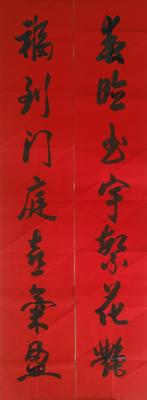 春临玉宇繁花艳
福到门庭喜气盈